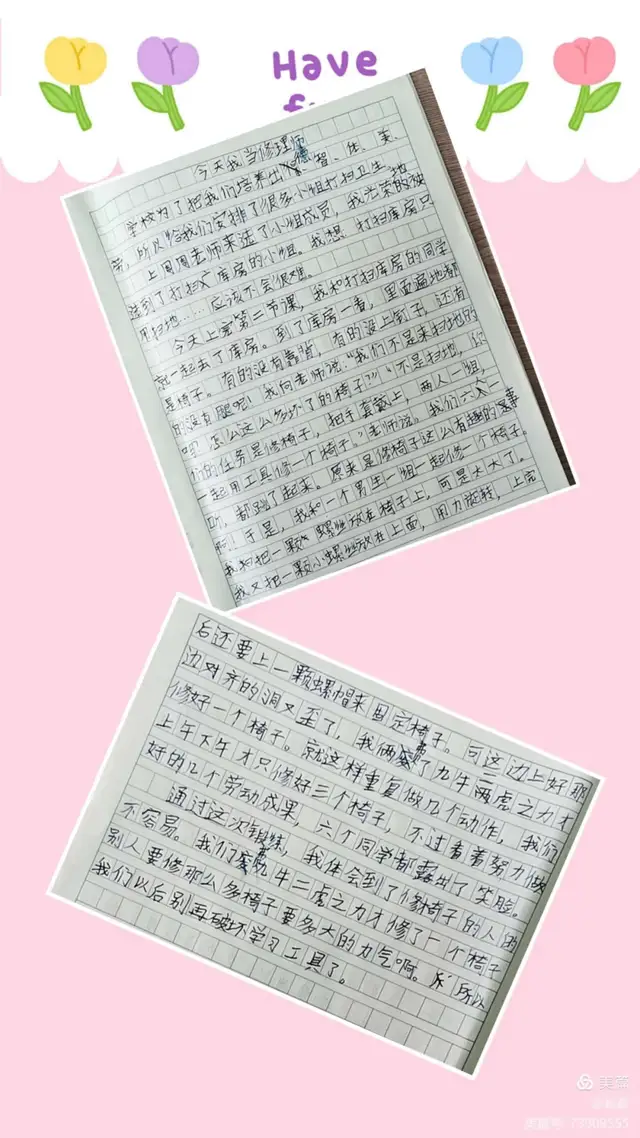 Have
今天我当修理师
学校为了把我们培养出德、智、体、美、
劳，所以给我们安排了很多小组打扫卫生，地
上周周老师来选了小组成员，我光荣的被
选到了打扫库房的小组。我想，打扫库房只
用扫地……应该不会很难。
今天上完第二节课，我和打扫库房的同学
就一起去了库房。到了库房一看，里面遍地都
是椅子。有的没有靠背，有的没上钉子，还有
的没有腿呢！我问老师说：“我们不是来扫地的
吗，怎么这么多坏了的椅子？”“不是扫地，你
们的任务是修椅子，把手套戴上，两人一组，
一起用工具修一个椅子。”老师说。我们六人一
听，都跳了起来。原来是修椅子这么有趣的事
啊！于是，我和一个男生一组一起修一个椅子。
我把一颗螺丝放在椅子上，可是太大了。
我又把一颗小螺丝放在上面，用力旋转，上完
后还要上一颗螺帽来固定椅子。可这边上好那
边对齐的洞又歪了，我俩费了九牛二虎之力才
修好一个椅子。就这样重复做几个动作，我们
上午下午才只修好三个椅子，不过看着努力做
好的几个劳动成果，六个同学都露出了笑脸。
通过这次锻炼，我体会到了修椅子的人的
不容易。我们费九牛二虎之力才修了一个椅子
别人要修那么多椅子要多大的力气啊。所以
我们以后别再破坏学习工具了。
美篇
73908555